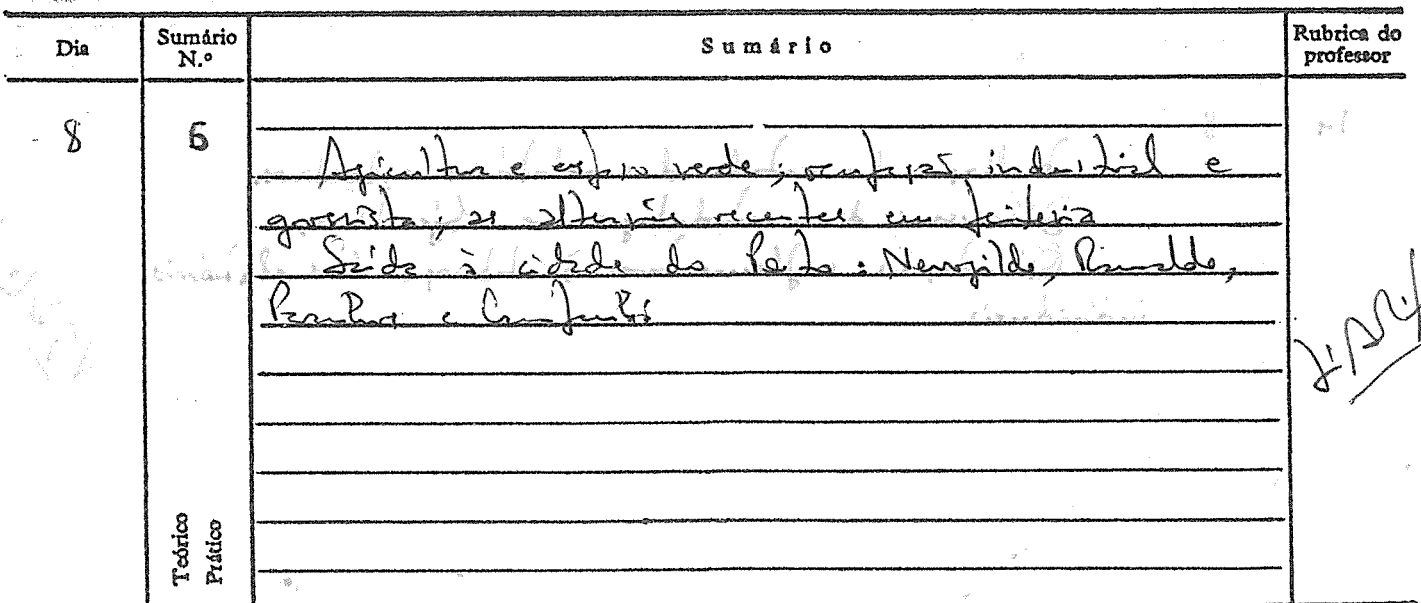 Dia Sumário N.º Sumário Rubrica do professor
8 6
Agricultura e espaço verde; ocupação industrial e
as alterações recentes em
Saída à cidade do Porto: Nevogilde, Ramalde,
Paranhos e Campanhã
Teórico
Prático